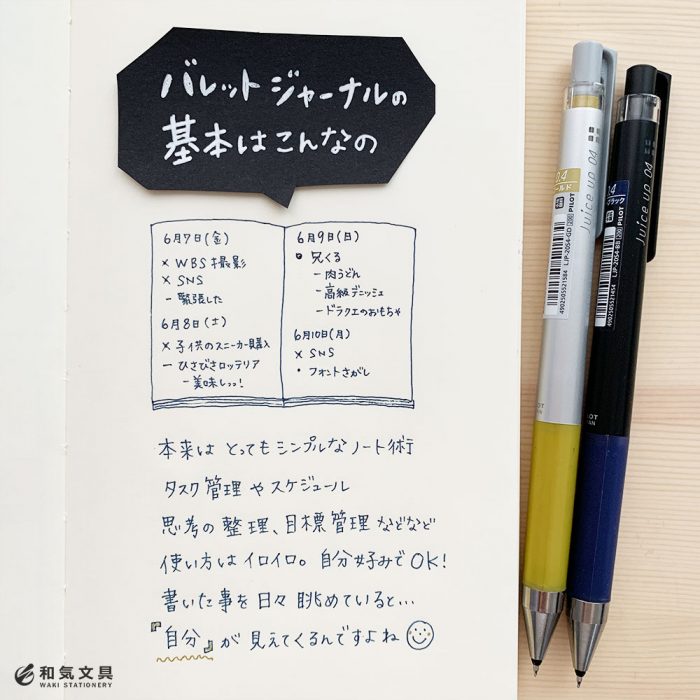 バレットジャーナルの
基本はこんなの
6月7日(金)
× WBS撮影
× SNS
－緊張した
6月8日(土)
× 子供のスニーカー購入
－ひさびさロッテリア
－美味しっっ!
6月9日(日)
兄くる
－肉うどん
－高級デニッシュ
－ドラクエのおもちゃ
6月10日(月)
× SNS
・フォントさがし
本来は とってもシンプルなノート術
タスク管理やスケジュール
思考の整理、目標管理などなど
使い方はイロイロ。自分好みでOK!
書いた事を日々眺めていると…
『自分』が見えてくるんですよね
Juice up 04
0.4
ールド
LJP-20S4-GD [200] PILOT
4902505521584
Juice up 04
0.4
ブラック
LJP-20S4-BB [200] PILOT
4902505521454
和気文具
WAKI STATIONERY